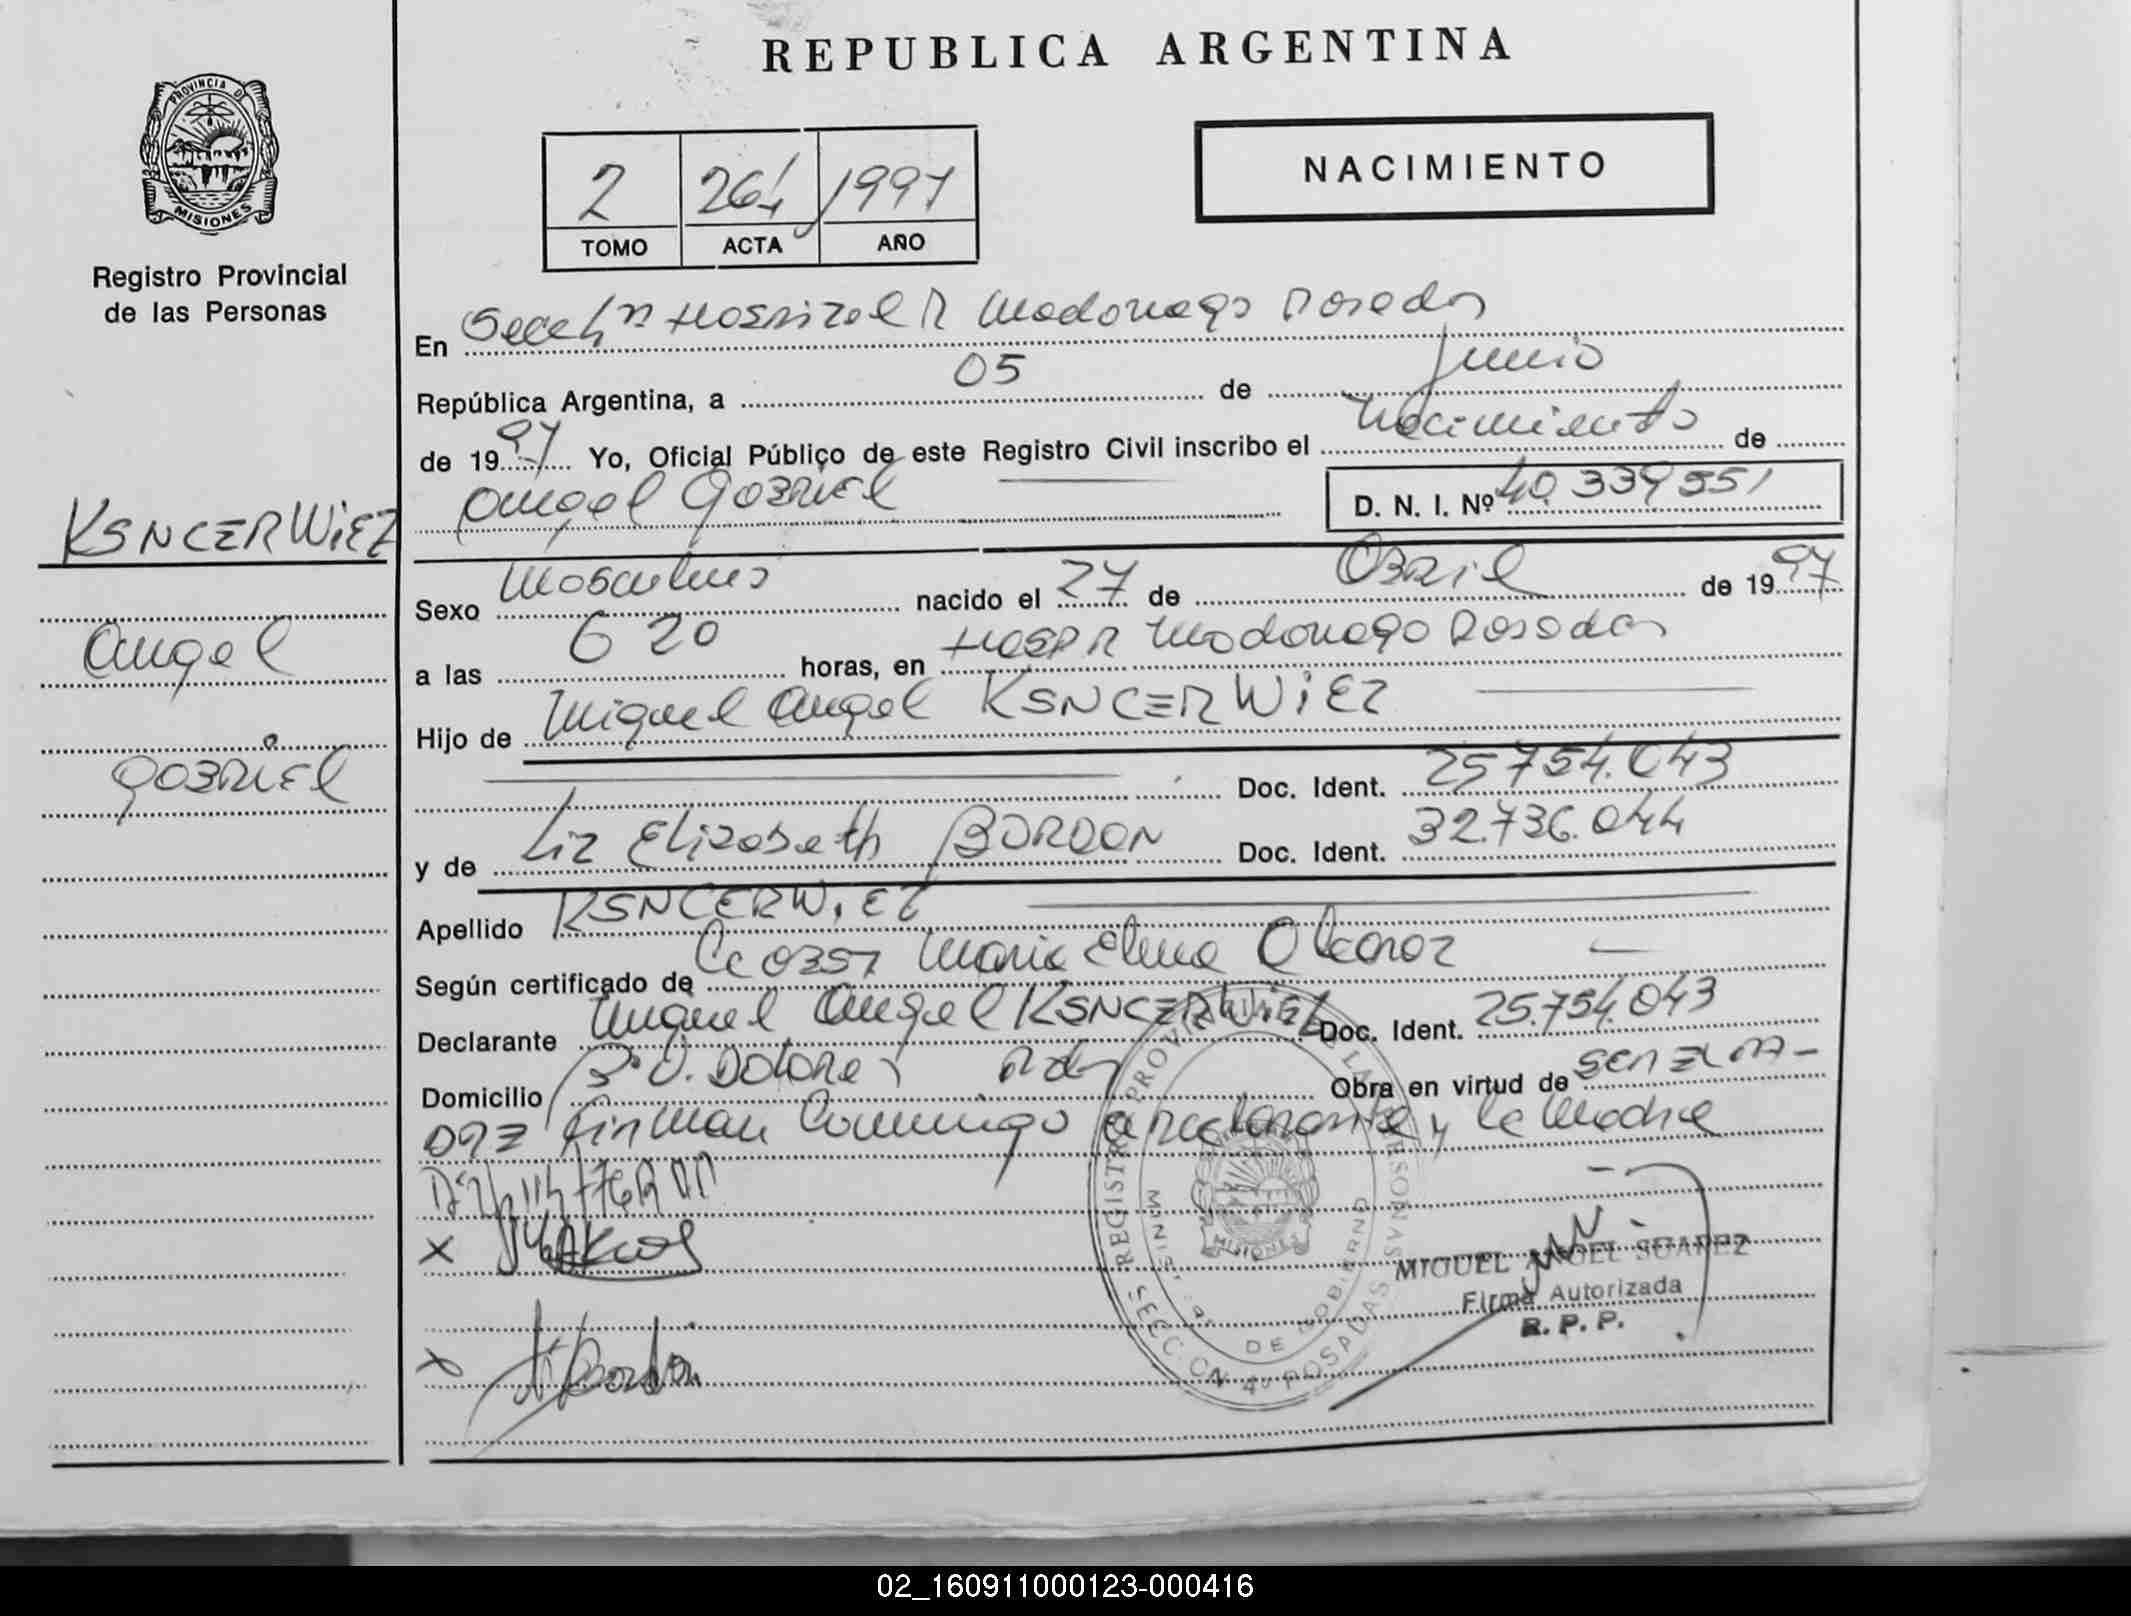 REPUBLICA ARGENTINA
PROVINCIA DE
MISIONES
Registro Provincial
de las Personas
NACIMIENTO
2 261 1997
TOMO ACTA AÑO
En Hospital R Madariaga Posadas
República Argentina, a 05 de Junio
de 1997 Yo, Oficial Público de este Registro Civil inscribo el Nacimiento de
Angel Gabriel D. N. I. Nº 40.339551
KSNCERWIEZ
Angel
Gabriel
Sexo Masculino nacido el 27 de Abril de 1997
a las 6 20 horas, en Hosp R Madariaga Posadas
Hijo de Miguel Angel KSNCERWiEZ
Doc. Ident. 25754.043
y de Liz Elizabeth BORDON Doc. Ident. 32.736.044
Apellido KSNCERWiEZ
Según certificado de Maria Elena
Declarante Miguel Angel KSNCERWiEZ Doc. Ident. 25.754.043
Domicilio Dolores Pdas Obra en virtud de
firman Conmigo el declarante y la Madre
X
X Bordon
REGISTRO PROVINCIAL DE LAS PERSONAS
MINIST. DE GOBIERNO
SECCION 4º POSADAS
MISIONES
MIGUEL ANGEL SUAREZ
Firma Autorizada
R. P. P.
02_160911000123-000416